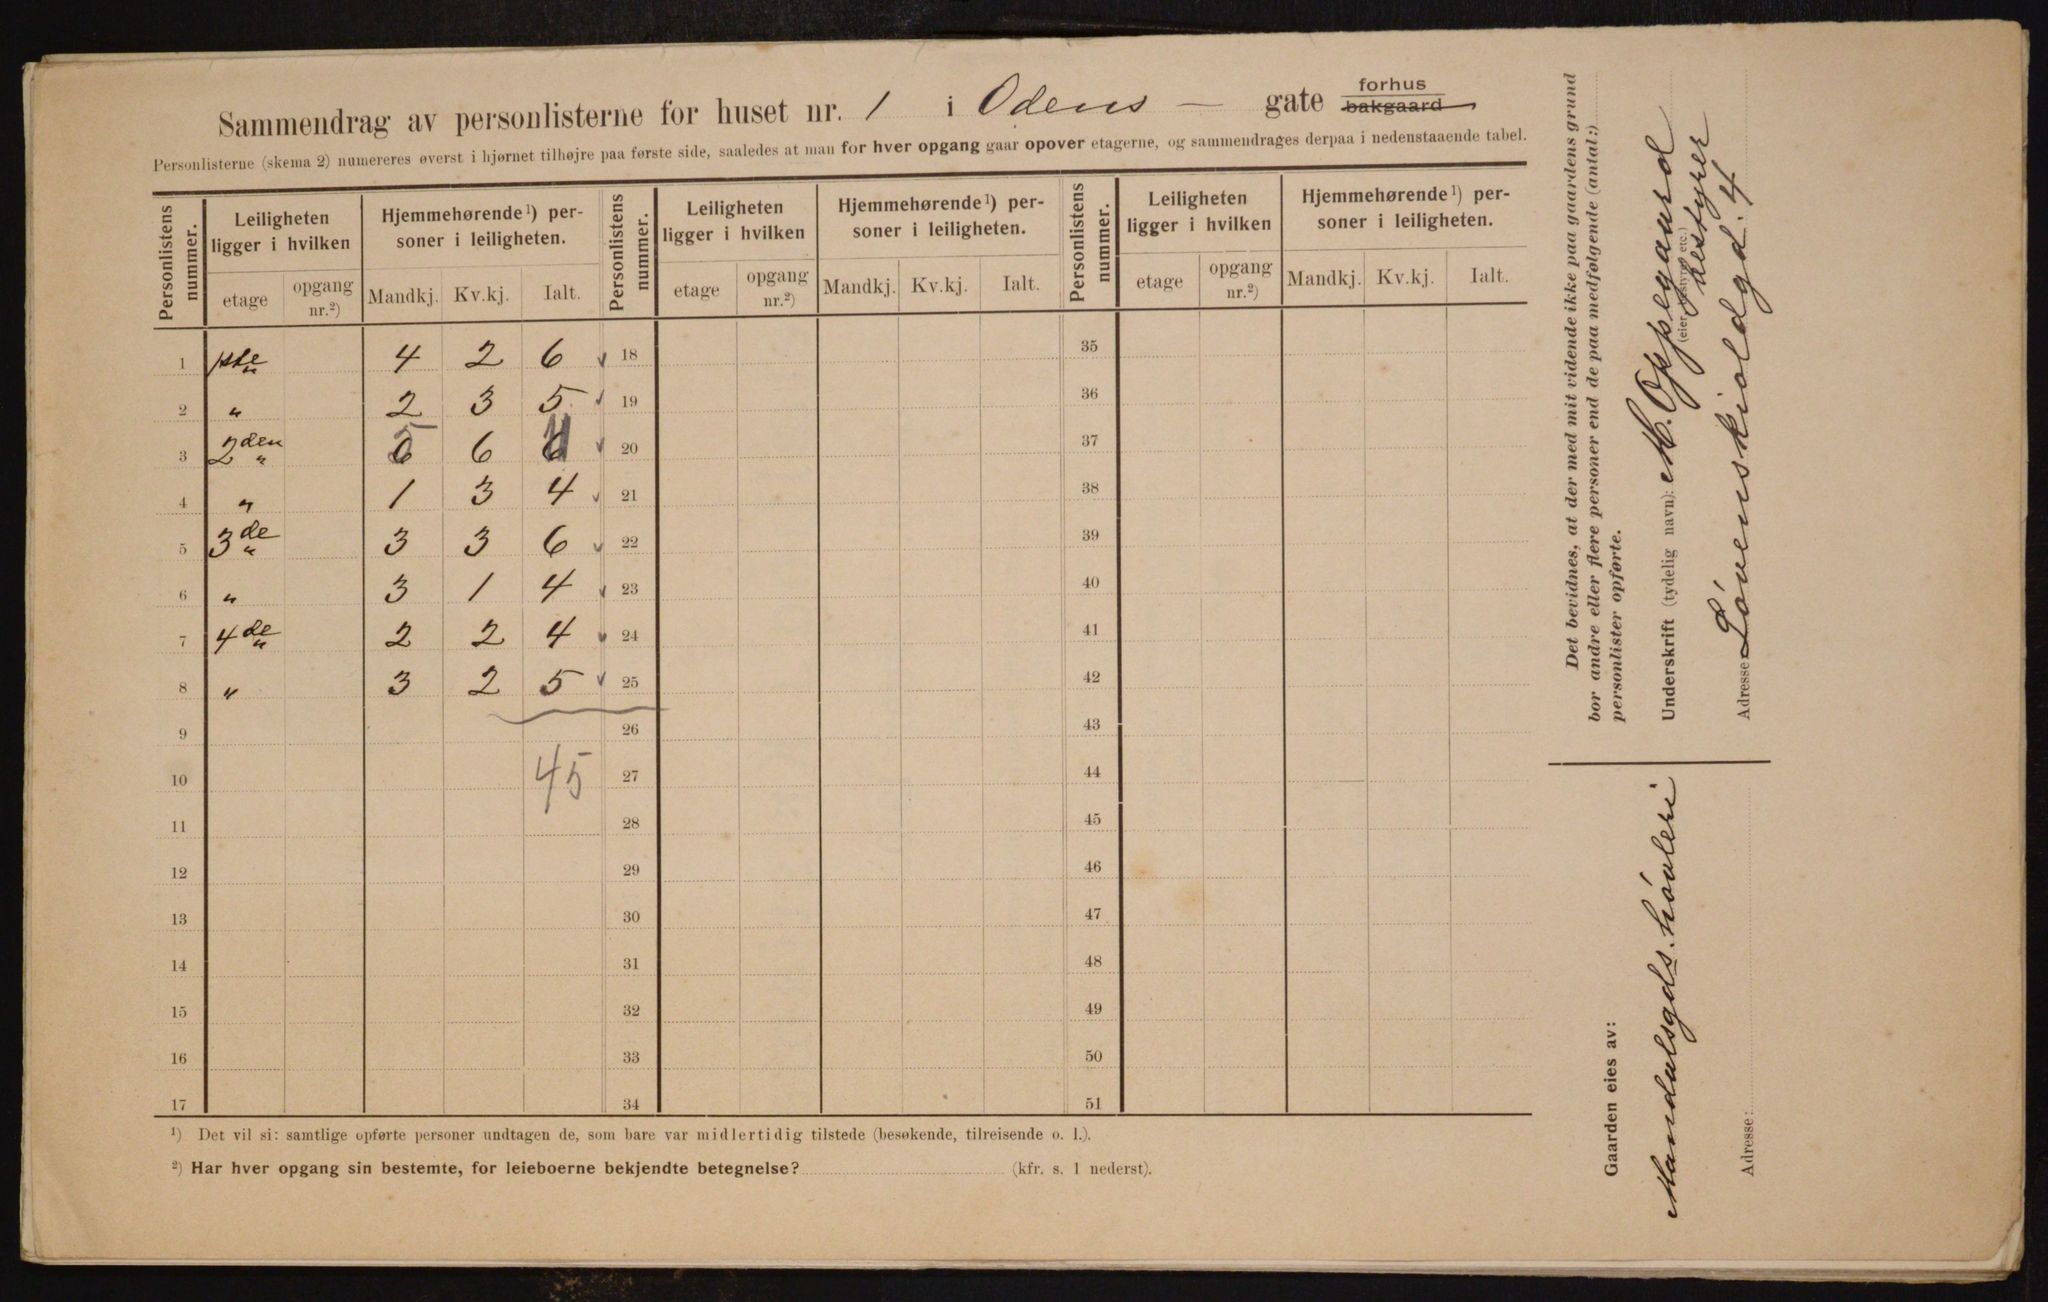 Sammendrag av personlisterne for huset nr. 1 i Odens — gate forhus bakgaard
Personlisterne (skema 2) numereres øverst i hjørnet tilhøjre paa første side, saaledes at man for hver opgang gaar opover etagerne, og sammendrages derpaa i nedenstaaende tabel.
Personlistens nummer. Leiligheten ligger i hvilken Hjemmehørende ¹) personer i leiligheten. Personlistens nummer. Leiligheten ligger i hvilken Hjemmehørende ¹) personer i leiligheten. Personlistens nummer. Leiligheten ligger i hvilken Hjemmehørende ¹) personer i leiligheten.
etage opgang nr.²) Mandkj. Kv.kj. Ialt. etage opgang nr.²) Mandkj. Kv.kj. Ialt. etage opgang nr.²) Mandkj. Kv.kj. Ialt.
1 1ste " 4 2 6 18 35
2 " 2 3 5 19 36
3 2den " 5 6 11 20 37
4 " 1 3 4 21 38
5 3de " 3 3 6 22 39
6 " 3 1 4 23 40
7 4de " 2 2 4 24 41
8 " 3 2 5 25 42
9 26 43
10 45 27 44
11 28 45
12 29 46
13 30 47
14 31 48
15 32 49
16 33 50
17 34 51
¹) Det vil si: samtlige opførte personer undtagen de, som bare var midlertidig tilstede (besøkende, tilreisende o. l.).
²) Har hver opgang sin bestemte, for leieboerne bekjendte betegnelse? (kfr. s. 1 nederst).
Det bevidnes, at der med mit vidende ikke paa gaardens grund
bor andre eller flere personer end de paa medfølgende (antal:)
personlister opførte.
Underskrift (tydelig navn): M. Oppegaard
(eier, bestyrer etc.)
bestyrer
Adresse: Lövenskioldgd. 4
Gaarden eies av:
Mandalsgds. hövleri
Adresse: